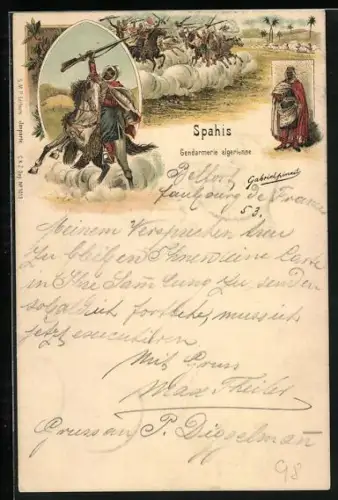 Spahis
Gendarmerie algérienne
Belfort
Faubourg de France
53.
Meinem Versprechen treu
zu bleiben Ihnen eine Carte
in Ihre Sammlung zu senden
sobald ich fortgehe, muss ich
jetzt executiren.
Mit Gruss
Max Theiler
Gruss an P. Diggelmann
98